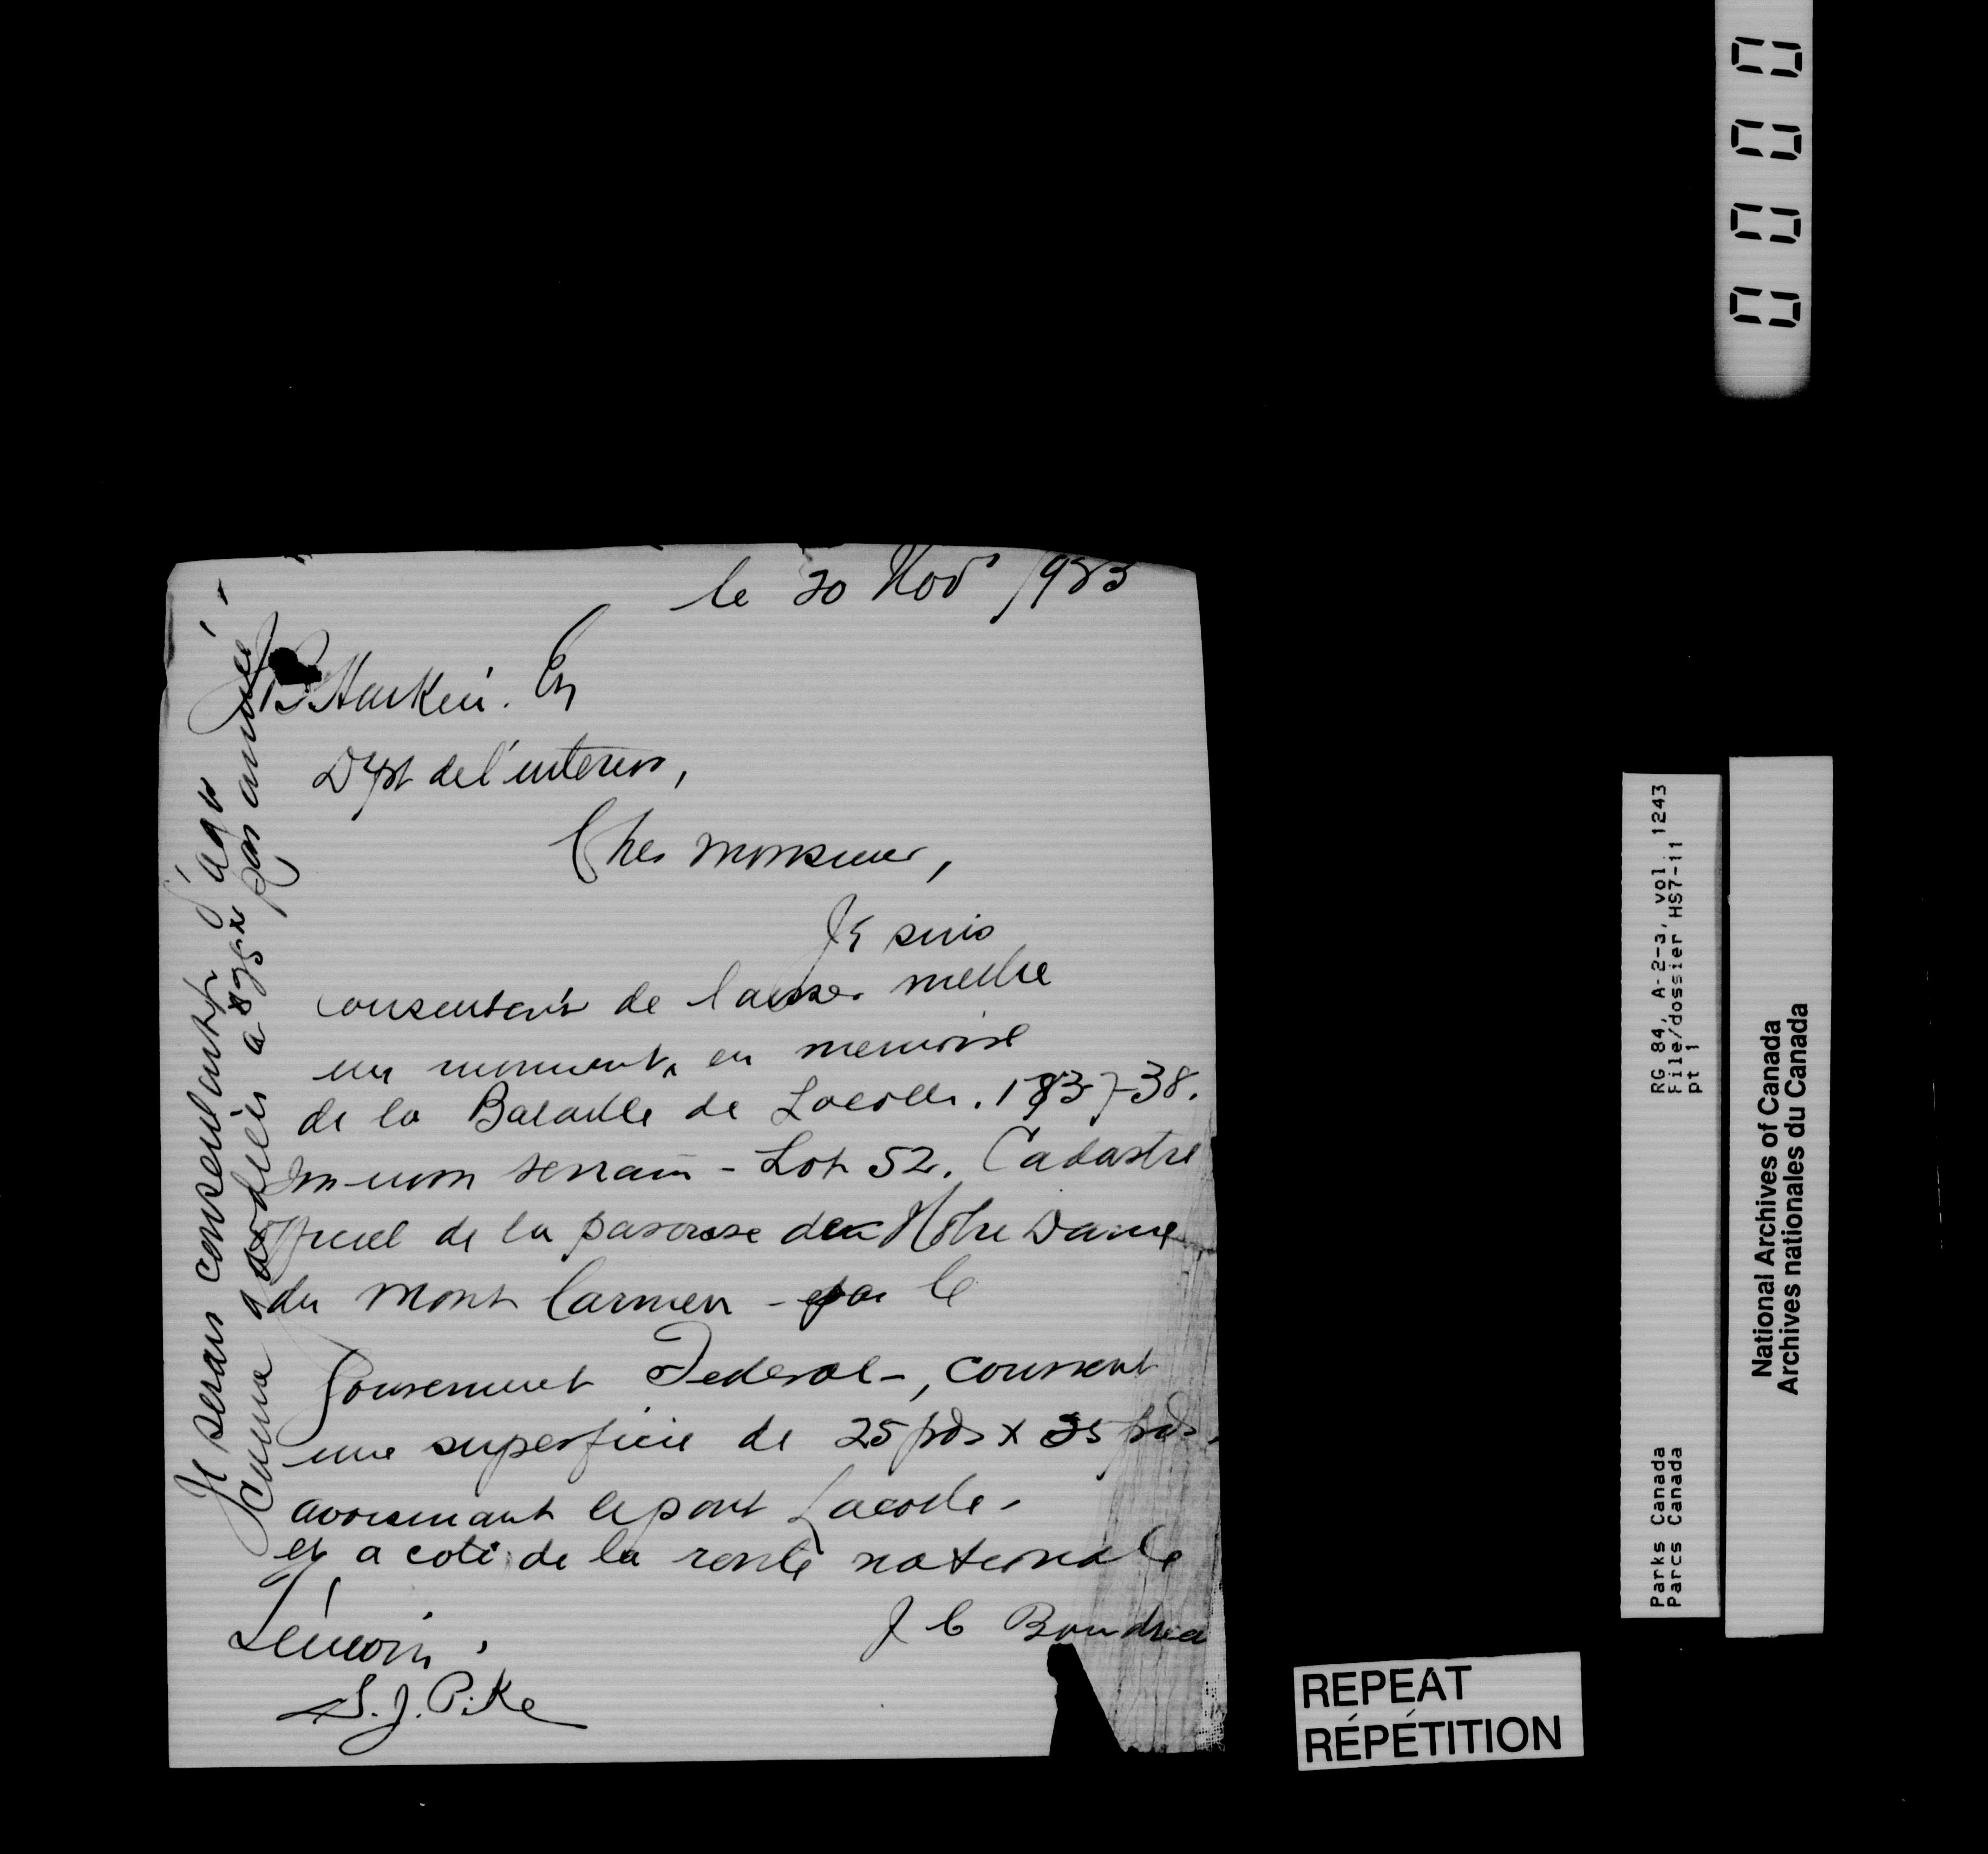 le 30 Nov 1923
J B Harkin. Esq
Dept de l'interieur,
Cher monsieur,
Je suis
consentant de laisser mettre
un monument, en memoire
de la Bataille de Lacolle. 1837-38.
sur mon terrain - Lot 52. Cadastre
officiel de la paroisse de Notre Dame
du Mont Carmen - par le
Gouvernement Federal -, couvrant
une superficie de 25 pds x 25 pds.
avoisinant le pont Lacolle -
et a coté de la route nationale
J C Boudrea
Témoin,
S. J. Pike
Je serais consentant d'agir
comme gardien a $25.xx par année -
0000
RG 84, A-2-3, vol. 1243
File/dossier HS7-11
pt 1
Parks Canada
Parcs Canada
National Archives of Canada
Archives nationales du Canada
REPEAT
RÉPÉTITION